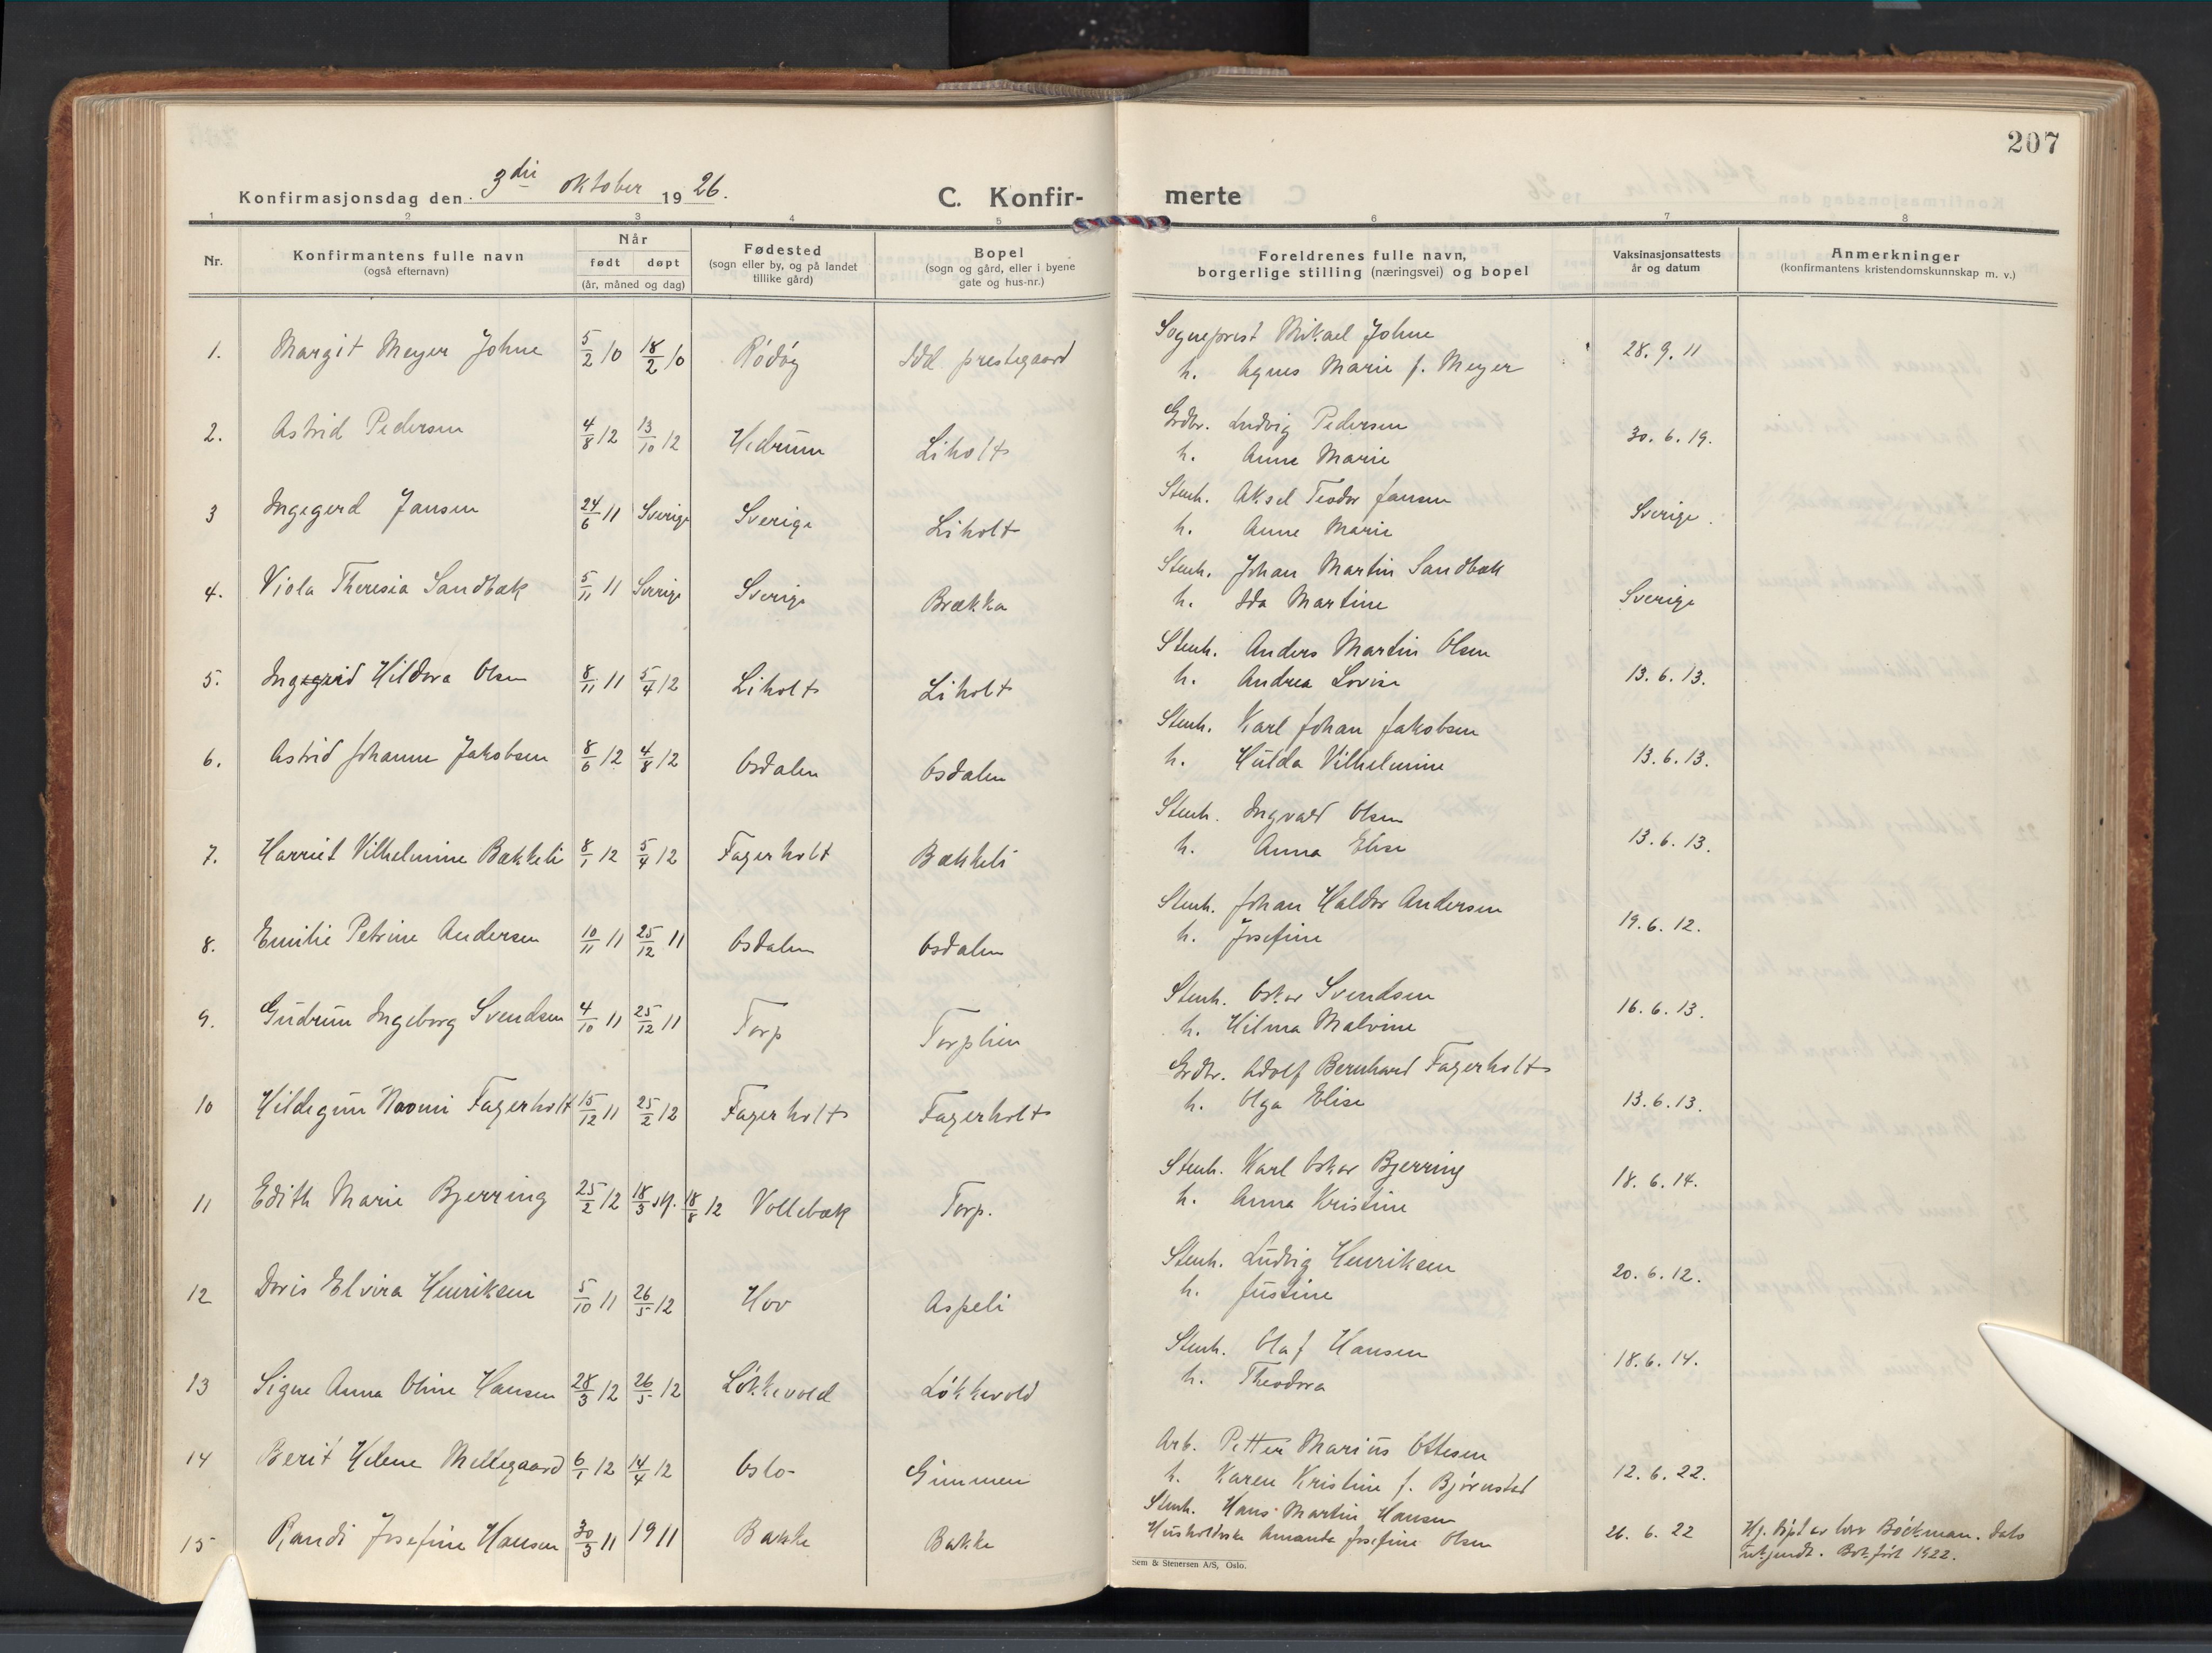 207
Konfirmasjonsdag den 3die oktober 1926.
C. Konfir-
merte
1 2 3 4 5 6 7 8
Nr.
Konfirmantens fulle navn
(også efternavn)
Når
født døpt
(år, måned og dag)
Fødested
(sogn eller by, og på landet
tillike gård)
Bopel
(sogn og gård, eller i byene
gate og hus-nr.)
Foreldrenes fulle navn,
borgerlige stilling (næringsvei) og bopel
Vaksinasjonsattests
år og datum
Anmerkninger
(konfirmantens kristendomskunnskap m. v.)
1. Margit Meyer Johne 5/2 10 18/2 10 Rödöy Idd prestegaard
Sogneprest Mikael Johne
h. Agnes Marie f. Meyer
28. 9. 11
2. Astrid Pedersen 4/8 12 13/10 12 Hedrum Liholt
Grdbr. Ludvig Pedersen
h. Anne Marie
30. 6. 19.
3 Ingegerd Jansen 24/6 11 Sverige Sverige Liholt
Stenh. Aksel Teodor Jansen
h. Anne Marie
Sverige.
4. Viola Theresia Sandbæk 5/11 11 Sverige Sverige Brække
Stenh. Johan Martin Sandbæk
h. Ida Martine
Sverige
5. Hildora Olsen 8/11 11 5/4 12 Liholt Liholt
Stenh. Anders Martin Olsen
h. Andrea Lovise
13. 6. 13.
6. Astrid Johanne Jakobsen 8/6 12 4/8 12 Osdalen Osdalen
Stenh. Karl Johan Jakobsen
h. Hulda Vilhelmine
13. 6. 13.
7. Harriet Vilhelmine Bækkeli 8/1 12 5/4 12 Fagerholt Bækkeli
Stenh. Ingvald Olsen
h. Anna Elise
13. 6. 13.
8. Emilie Petrine Andersen 10/11 11 25/12 11 Osdalen Osdalen
Stenh. Johan Haldor Andersen
h. Josefine
19. 6. 12.
9. Gudrun Ingeborg Svendsen 4/10 11 25/12 11 Torp Torplien
Stenh. Oskar Svendsen
h. Hilma Malvine
16. 6. 13.
10 Hildegun Naomi Fagerholt 15/12 11 25/2 12 Fagerholt Fagerholt
Grdbr. Adolf Bernhard Fagerholt
h. Olga Elise
13. 6. 13.
11 Edith Marie Bjerring 25/2 12 18/3 st. 18/8 12 Vollebæk Torp.
Stenh. Karl Oskar Bjerring
h. Anna Kristine
18. 6. 14.
12 Doris Elvira Henriksen 5/10 11 26/5 12 Hov Aspeli
Stenh. Ludvig Henriksen
h. Justine
20. 6. 12.
13 Signe Anna Oline Hansen 28/3 12 26/5 12 Lökkevold Lökkevold
Stenh. Olaf Hansen
h. Theodora
18. 6. 14.
14 Berit Helene Mellegaard 6/1 12 14/4 12 Oslo Gimmen
Arb. Petter Marius Ottesen
h. Karen Kristine f. Björnstad
12. 6. 22.
15 Randi Josefine Hansen 30/3 11 1911 Bakke Bakke
Stenh. Hans Martin Hansen
Husholdske Amanda Josefine Olsen
26. 6. 22
Hj. döpt av Böckman. Dato
ukjendt. Bokfört 1922.
Sem & Stenersen A/S, Oslo.